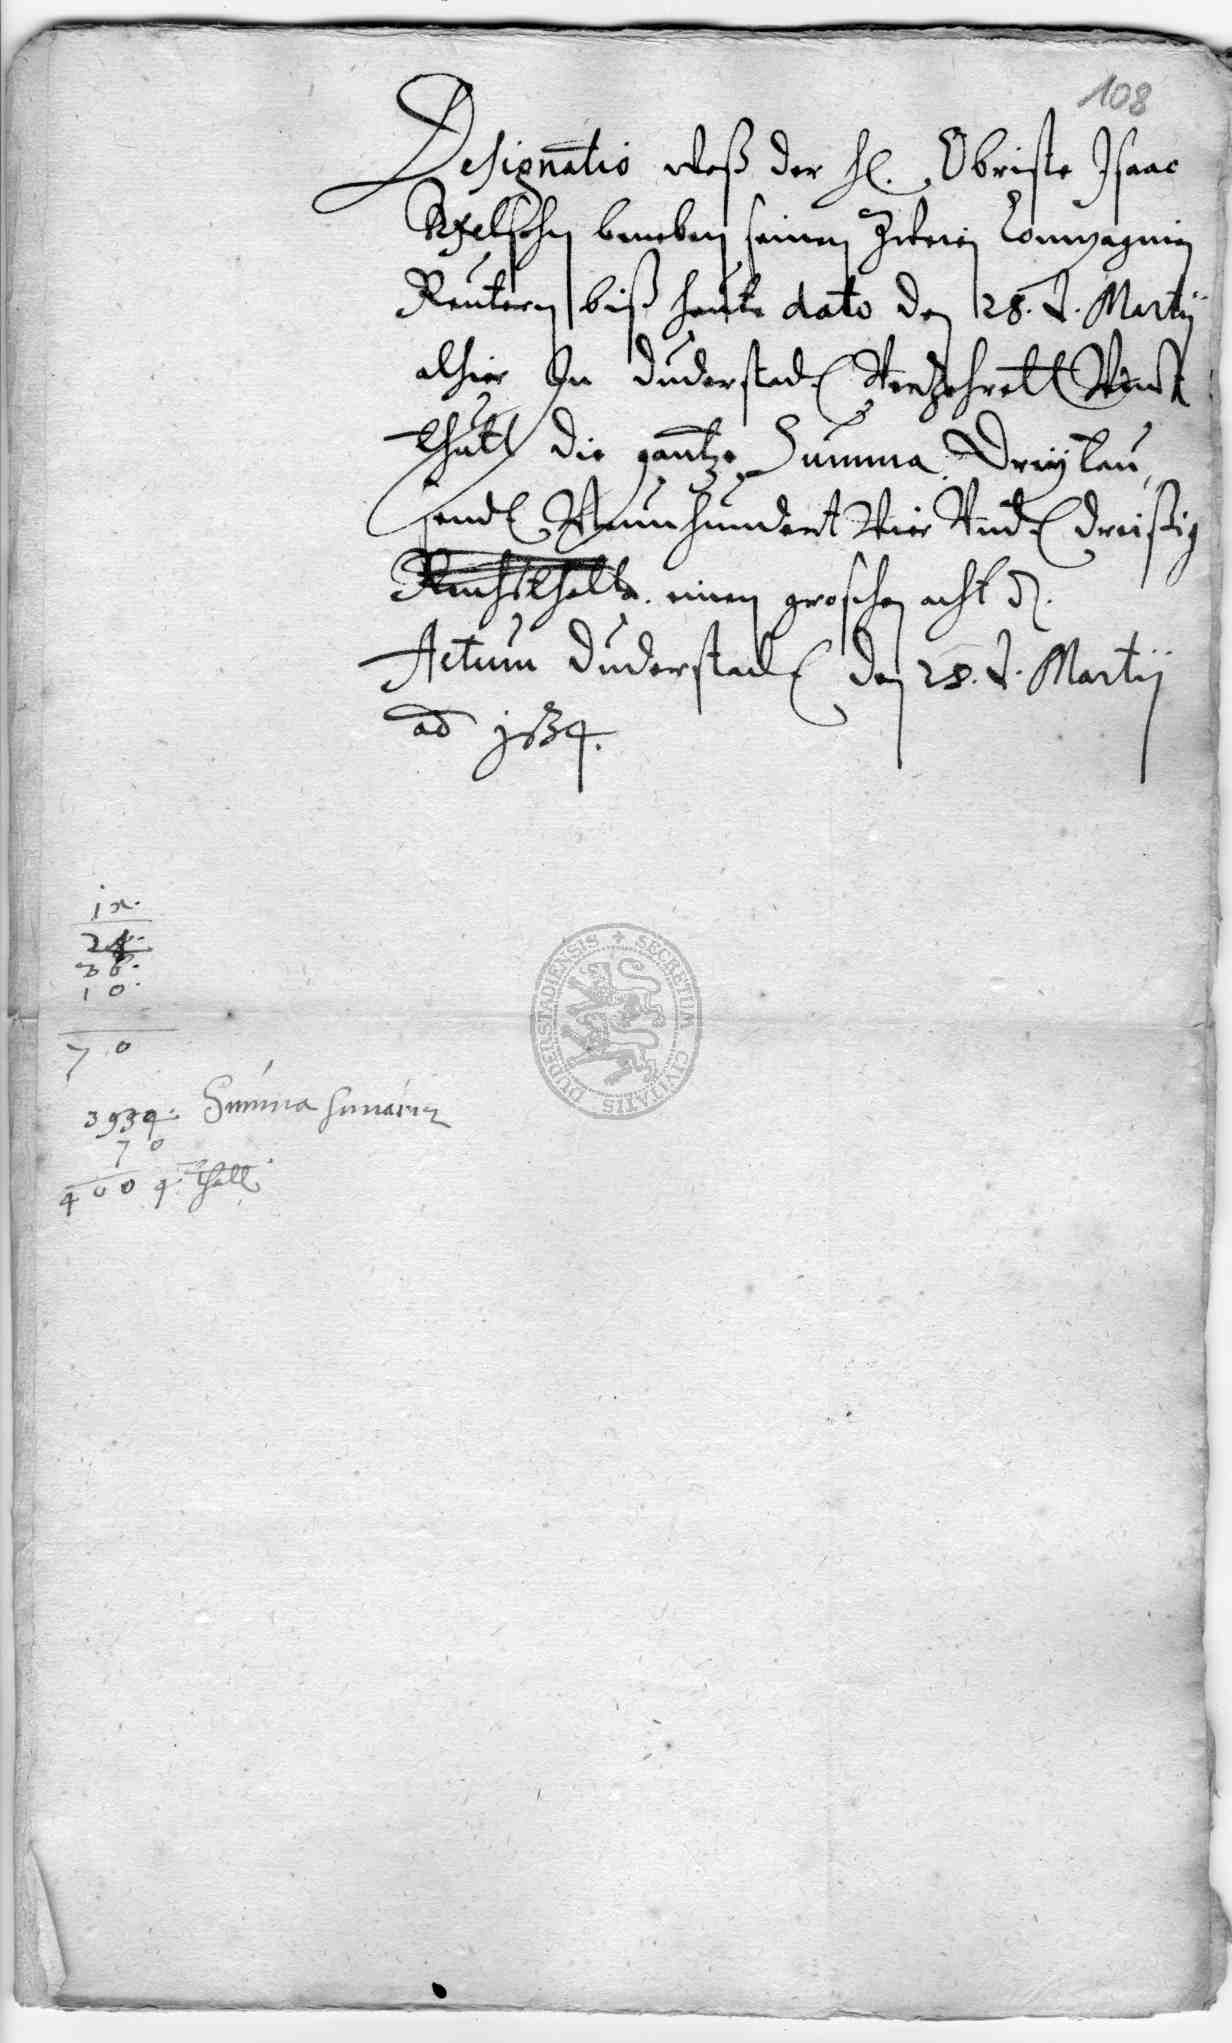 108
Designatio waß der H. Obriste Isaac
Axelsohn beneben seinen Zweien Compagnien
Reutern biß heute dato den 28. t. Martij
alhier In duderstadt Verzehrett Vnndt
thutt die gantze Summa. Dreÿ tau,
sendt Neunhundert Vier Vndt dreißig
Reichsthaller. einen groschen acht ₰.
Actum Duderstadt den 28. t. Martij
ao 1634.
36.
10.
70
3934. Summa
70
4004. thall.
SECRETUM CIVITATIS DUDERSTADIENSIS